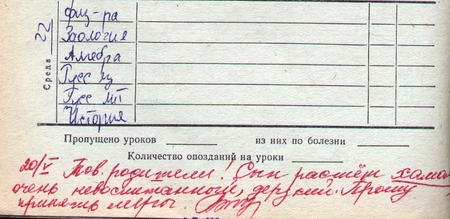 физ-ра
22
Зоология
Алгебра
Среда
Русс яз
Русс лит
История
Пропущено уроков из них по болезни
Количество опозданий на уроки
20/V Тов. родители! Сын растёт хамом,
очень невоспитанный, дерзкий. Прошу
принять меры.